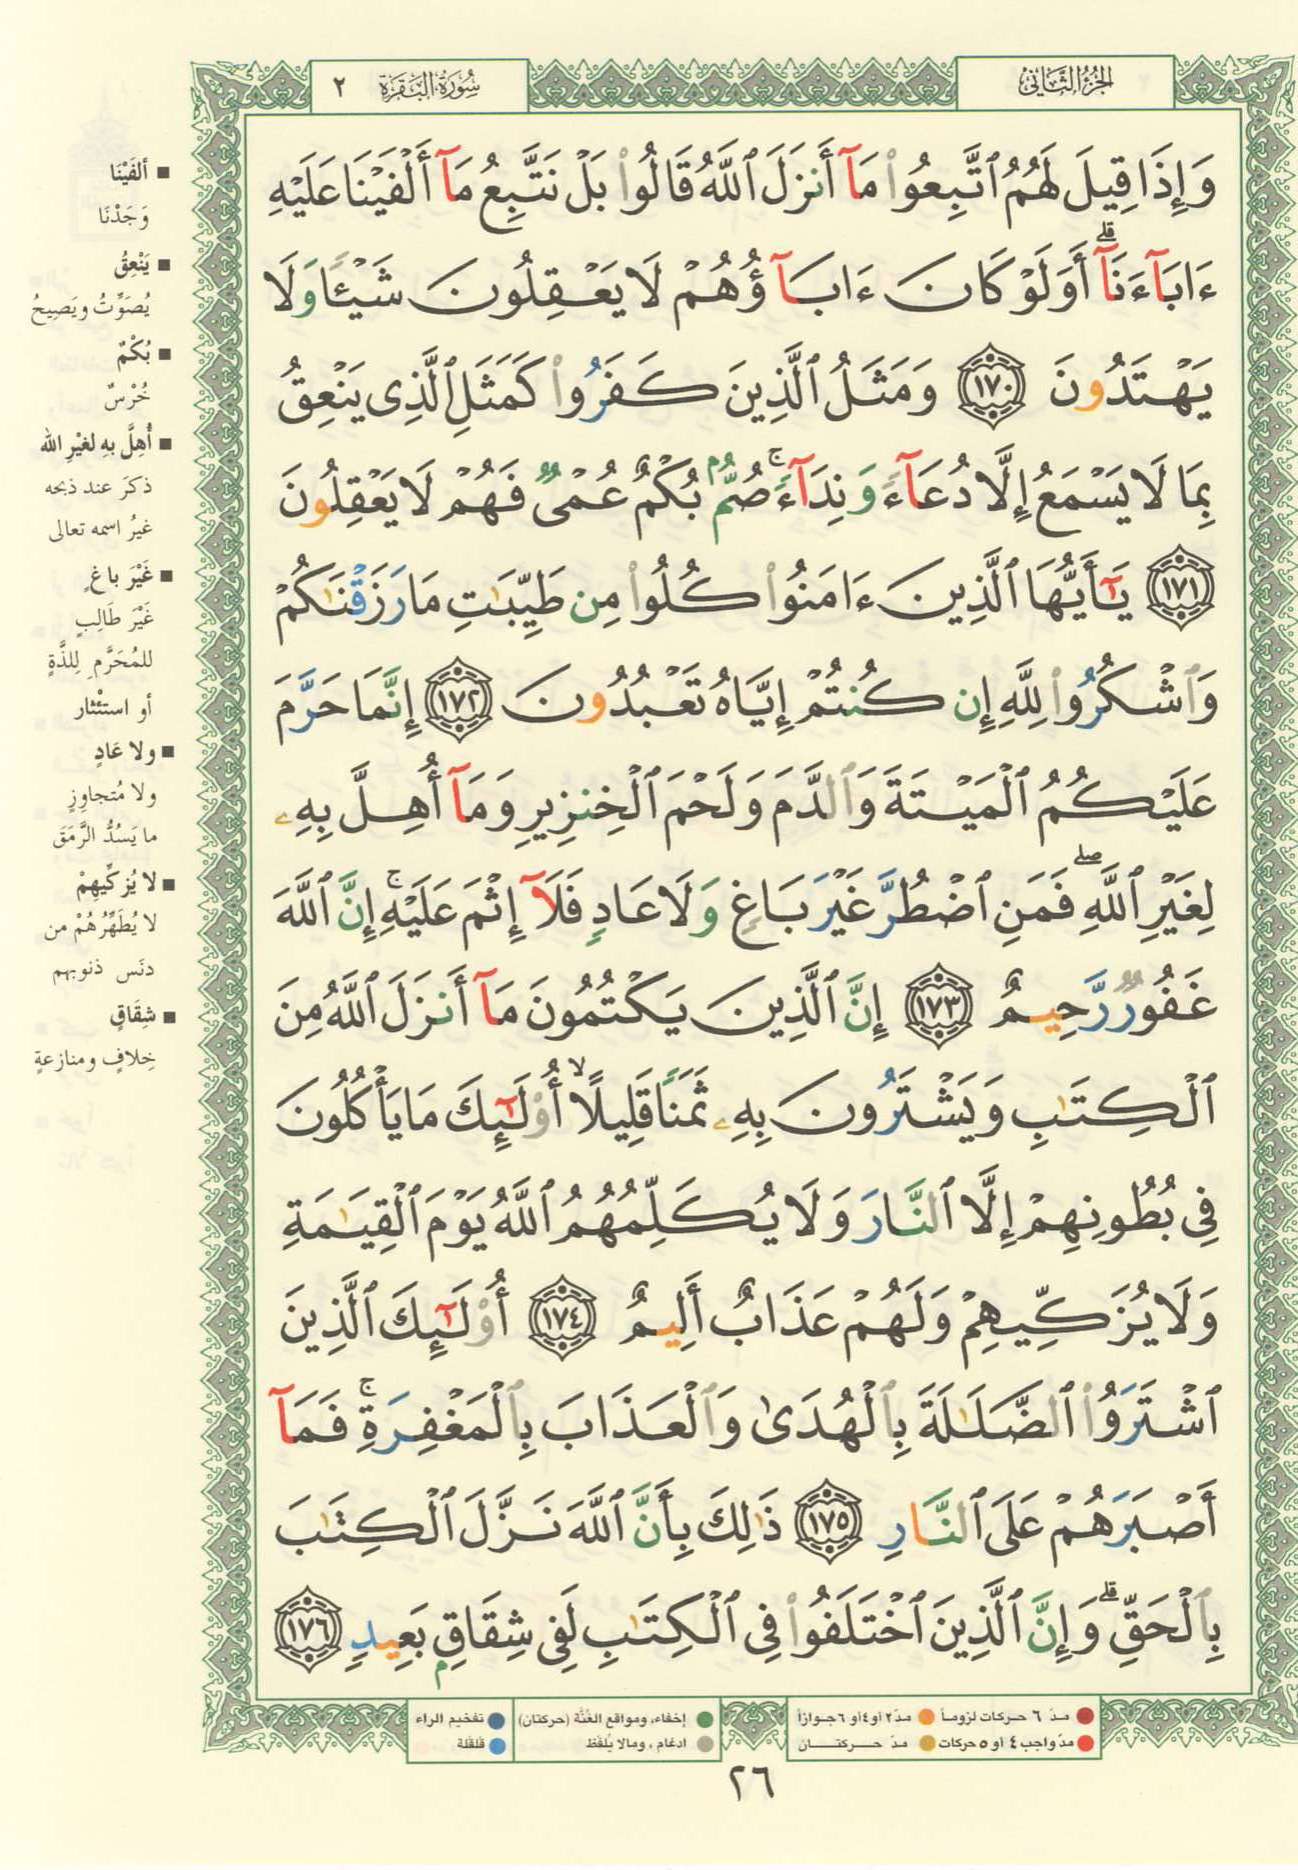 الجزء الثاني
سورة البقرة ٢
وَإِذَا قِيلَ لَهُمُ ٱتَّبِعُوا۟ مَآ أَنزَلَ ٱللَّهُ قَالُوا۟ بَلْ نَتَّبِعُ مَآ أَلْفَيْنَا عَلَيْهِ
ءَابَآءَنَآ ۗ أَوَلَوْ كَانَ ءَابَآؤُهُمْ لَا يَعْقِلُونَ شَيْـًٔا وَلَا
يَهْتَدُونَ ١٧٠ وَمَثَلُ ٱلَّذِينَ كَفَرُوا۟ كَمَثَلِ ٱلَّذِى يَنْعِقُ
بِمَا لَا يَسْمَعُ إِلَّا دُعَآءً وَنِدَآءً ۚ صُمٌّۢ بُكْمٌ عُمْىٌ فَهُمْ لَا يَعْقِلُونَ
١٧١ يَـٰٓأَيُّهَا ٱلَّذِينَ ءَامَنُوا۟ كُلُوا۟ مِن طَيِّبَـٰتِ مَا رَزَقْنَـٰكُمْ
وَٱشْكُرُوا۟ لِلَّهِ إِن كُنتُمْ إِيَّاهُ تَعْبُدُونَ ١٧٢ إِنَّمَا حَرَّمَ
عَلَيْكُمُ ٱلْمَيْتَةَ وَٱلدَّمَ وَلَحْمَ ٱلْخِنزِيرِ وَمَآ أُهِلَّ بِهِۦ
لِغَيْرِ ٱللَّهِ ۖ فَمَنِ ٱضْطُرَّ غَيْرَ بَاغٍ وَلَا عَادٍ فَلَآ إِثْمَ عَلَيْهِ ۚ إِنَّ ٱللَّهَ
غَفُورٌ رَّحِيمٌ ١٧٣ إِنَّ ٱلَّذِينَ يَكْتُمُونَ مَآ أَنزَلَ ٱللَّهُ مِنَ
ٱلْكِتَـٰبِ وَيَشْتَرُونَ بِهِۦ ثَمَنًا قَلِيلًا ۙ أُو۟لَـٰٓئِكَ مَا يَأْكُلُونَ
فِى بُطُونِهِمْ إِلَّا ٱلنَّارَ وَلَا يُكَلِّمُهُمُ ٱللَّهُ يَوْمَ ٱلْقِيَـٰمَةِ
وَلَا يُزَكِّيهِمْ وَلَهُمْ عَذَابٌ أَلِيمٌ ١٧٤ أُو۟لَـٰٓئِكَ ٱلَّذِينَ
ٱشْتَرَوُا۟ ٱلضَّلَـٰلَةَ بِٱلْهُدَىٰ وَٱلْعَذَابَ بِٱلْمَغْفِرَةِ ۚ فَمَآ
أَصْبَرَهُمْ عَلَى ٱلنَّارِ ١٧٥ ذَٰلِكَ بِأَنَّ ٱللَّهَ نَزَّلَ ٱلْكِتَـٰبَ
بِٱلْحَقِّ ۗ وَإِنَّ ٱلَّذِينَ ٱخْتَلَفُوا۟ فِى ٱلْكِتَـٰبِ لَفِى شِقَاقٍۭ بَعِيدٍ ١٧٦
■ ألفَيْنَا
وَجَدْنَا
■ يَنْعِقُ
يُصَوِّتُ ويَصِيحُ
■ بُكْمٌ
خُرْسٌ
■ أُهِلَّ بهِ لغيْرِ الله
ذكَرَ عند ذبحه
غيرُ اسمه تعالى
■ غَيْرَ باغٍ
غَيْرَ طَالِبٍ
للمُحَرَّمِ لِلذَّةٍ
أو استئثار
■ ولا عَادٍ
ولا مُتجاوِزٍ
ما يَسُدُّ الرَّمَقَ
■ لا يُزكِّيهِمْ
لا يُطَهِّرُهُمْ من
دنَس ذنوبهم
■ شِقَاقٍ
خِلافٍ ومنازعةٍ
مدّ ٦ حركات لزوماً
مدّ ٢ أو ٤ أو ٦ جوازاً
إخفاء، ومواقع الغُنَّة (حركتان)
تفخيم الراء
مدّ واجب ٤ أو ٥ حركات
مدّ حركتان
ادغام، ومالا يُلفَظ
قلقلة
٢٦